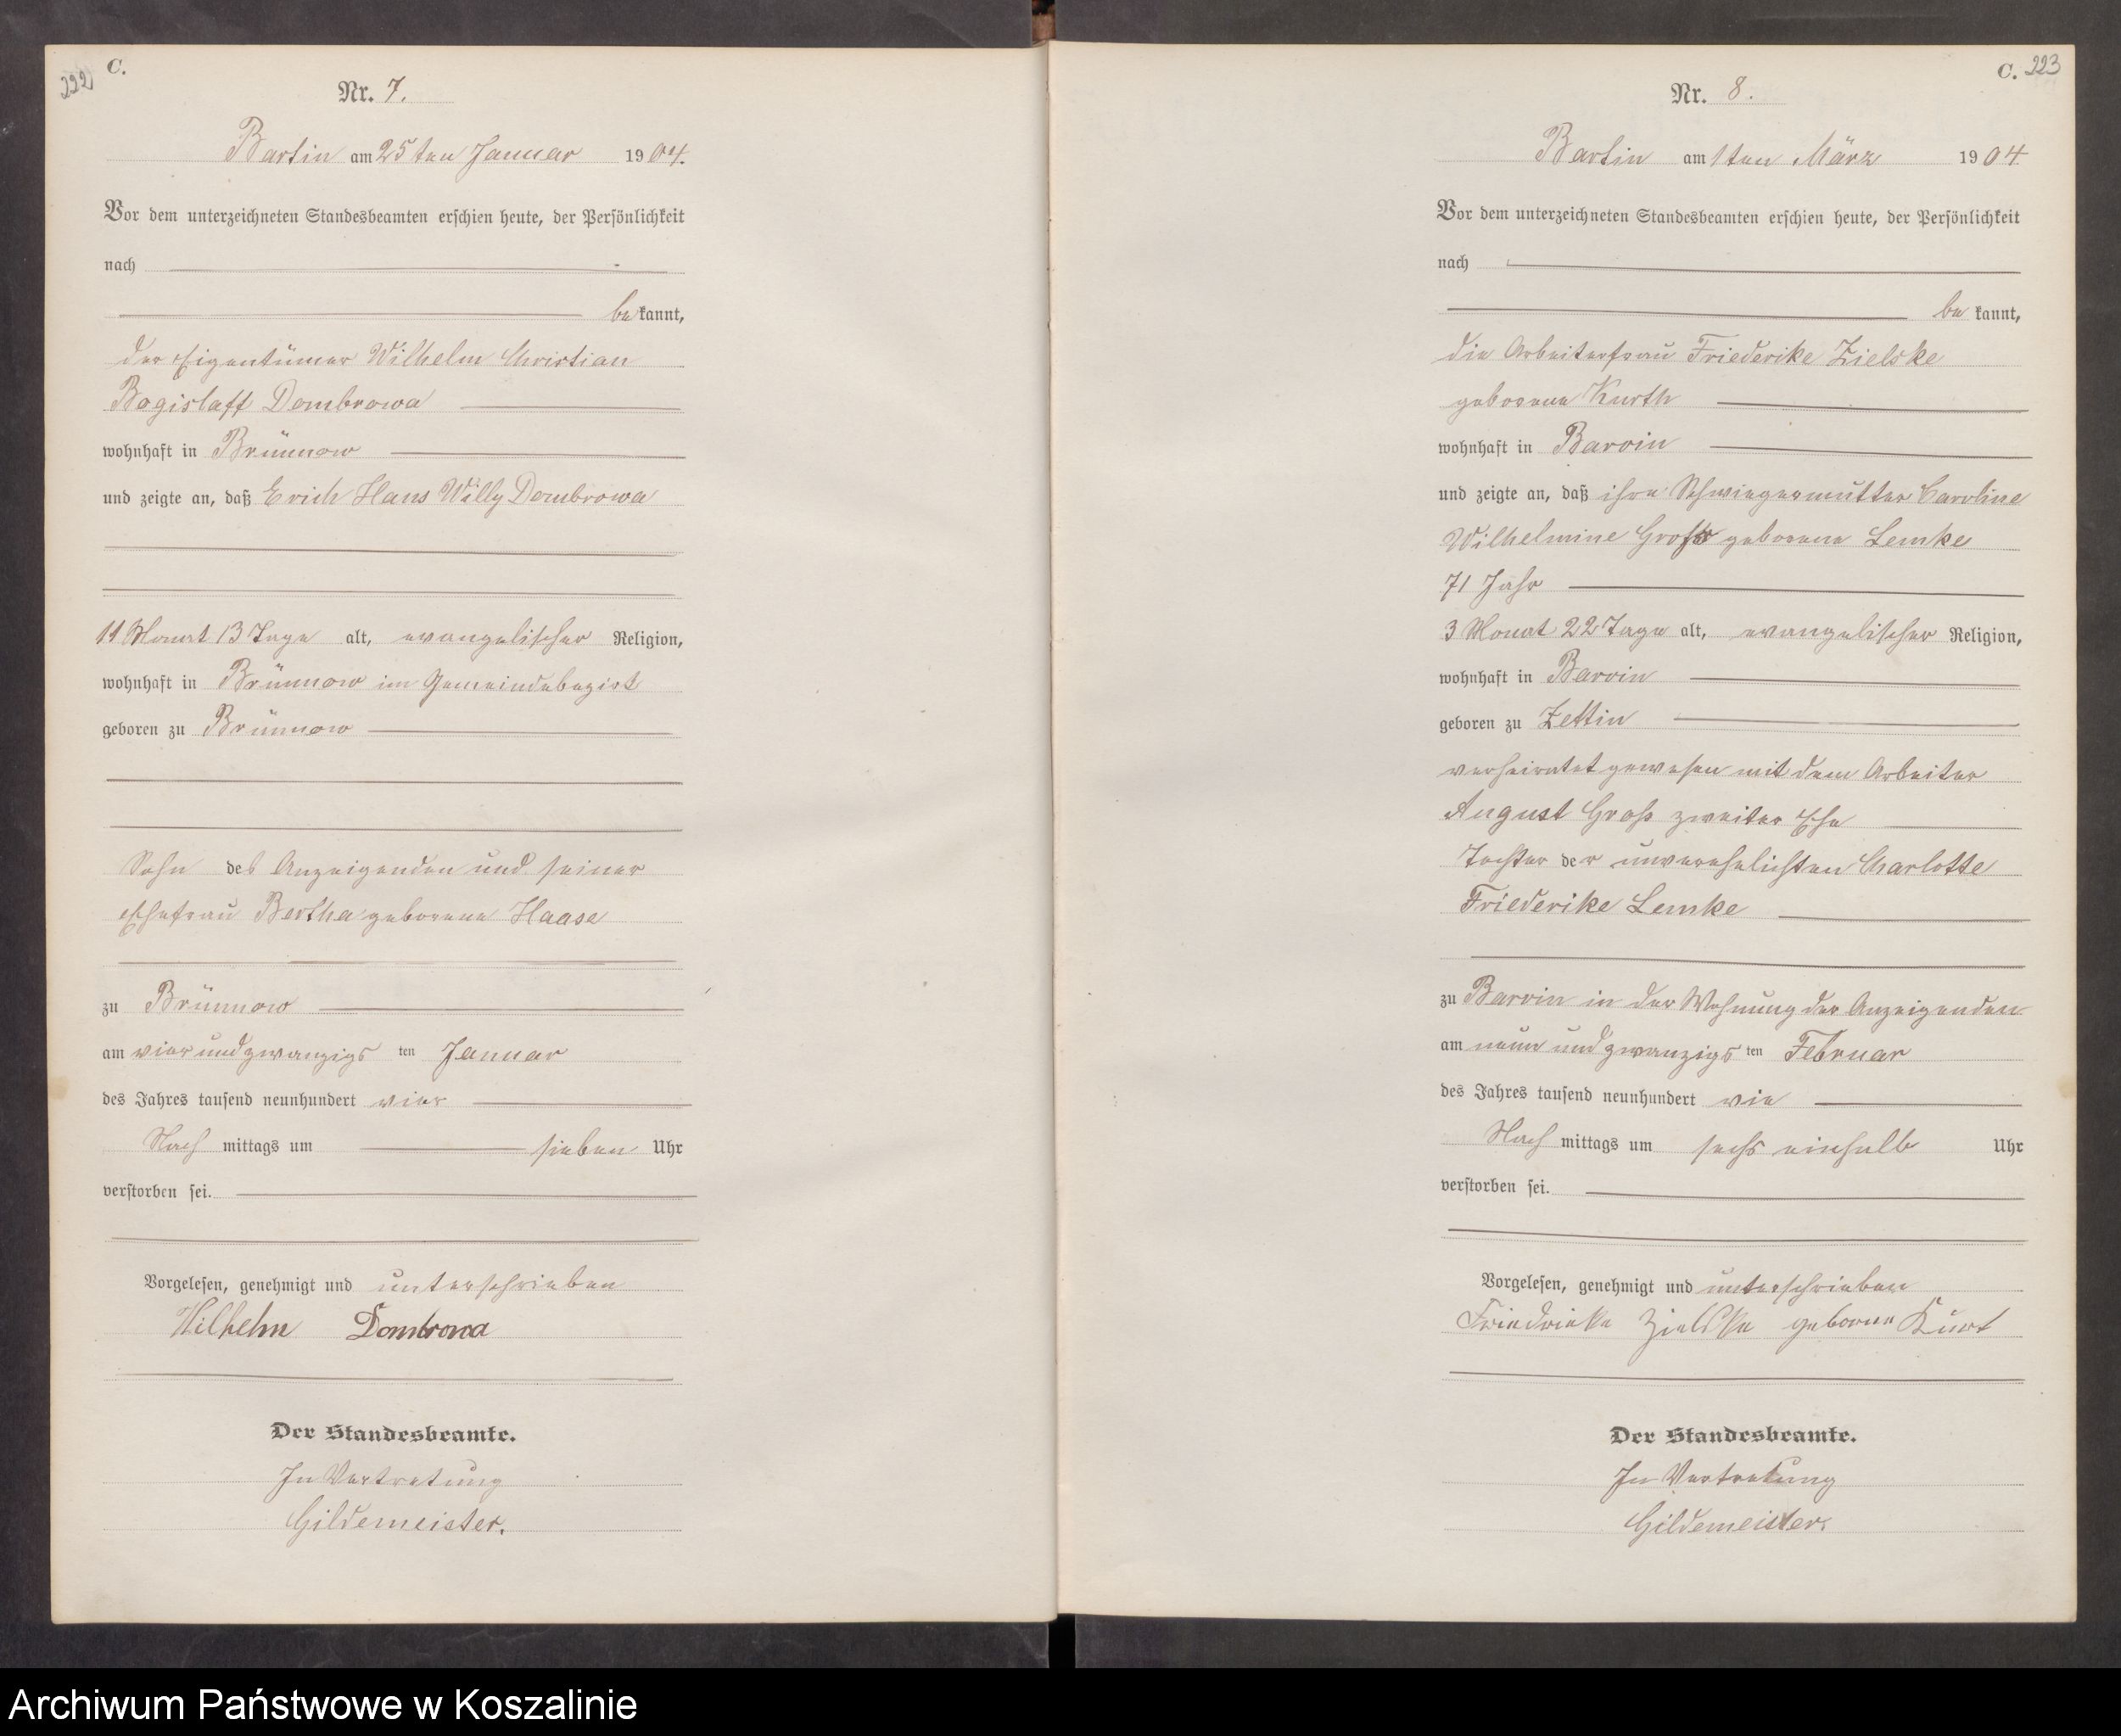 222
C.
Nr. 7.
Bartin am 25ten Januar 1904.
Vor dem unterzeichneten Standesbeamten erschien heute, der Persönlichkeit
nach
bekannt,
der Eigentümer Wilhelm Christian
Bogislaff Dombrowa
wohnhaft in Brünnow
und zeigte an, daß Erich Hans Willy Dombrowa
11 Monat 13 Tage alt, evangelischer Religion,
wohnhaft in Brünnow im Gemeindebezirk
geboren zu Brünnow
Sohn des Anzeigenden und seiner
Ehefrau Bertha geborene Haase
zu Brünnow
am vier und zwanzigsten Januar
des Jahres tausend neunhundert vier
Nachmittags um sieben Uhr
verstorben sei.
Vorgelesen, genehmigt und unterschrieben
Wilhelm Dombrowa
Der Standesbeamte.
In Vertretung
Gildemeister.
C. 223
Nr. 8.
Bartin am 1ten März 1904
Vor dem unterzeichneten Standesbeamten erschien heute, der Persönlichkeit
nach
bekannt,
die Arbeiterfrau Friederike Zielske
geborene Kurth
wohnhaft in Barvin
und zeigte an, daß ihre Schwiegermutter Caroline
Wilhelmine Groß geborene Lemke
71 Jahr
3 Monat 22 Tage alt, evangelischer Religion,
wohnhaft in Barvin
geboren zu Zettin
verheiratet gewesen mit dem Arbeiter
August Groß zweiter Ehe
Tochter der unverehelichten Charlotte
Friederike Lemke
zu Barvin in der Wohnung der Anzeigenden
am neun und zwanzigsten Februar
des Jahres tausend neunhundert vie
Nachmittags um sechs einhalb Uhr
verstorben sei.
Vorgelesen, genehmigt und unterschrieben
Friedrieke Zielske geborne Kurt
Der Standesbeamte.
In Vertretung
Gildemeister.
Archiwum Państwowe w Koszalinie